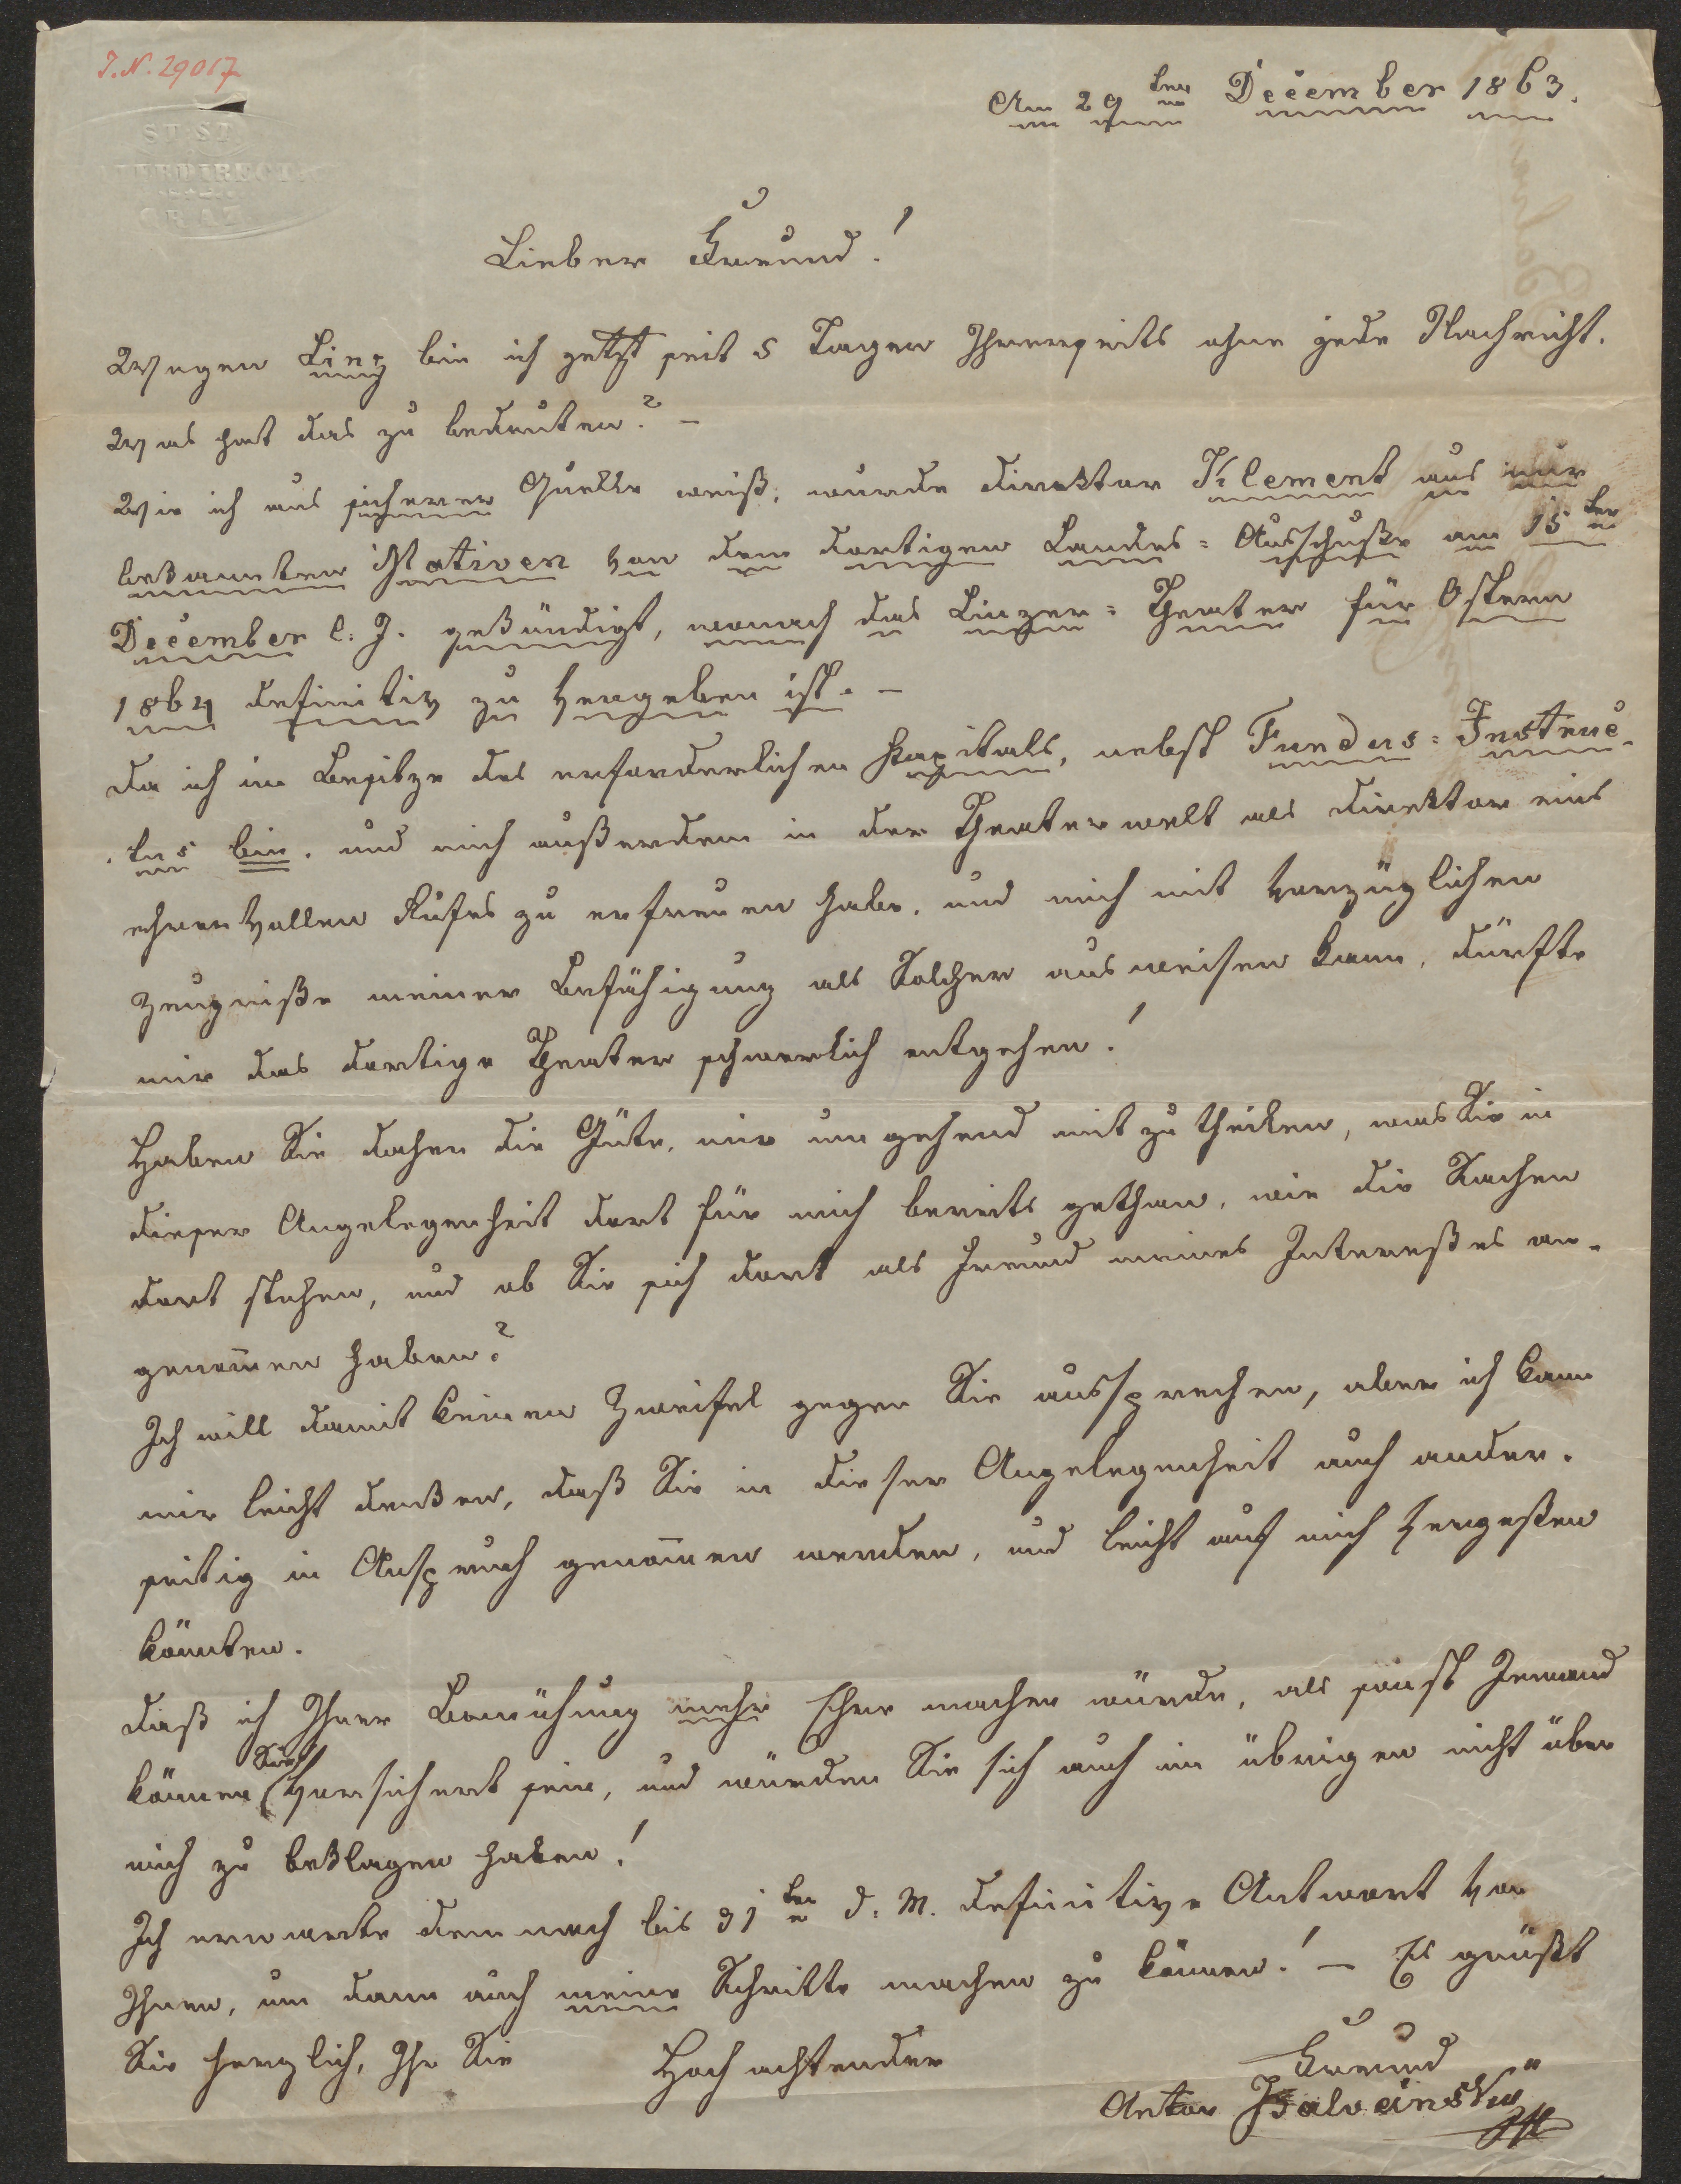 I.N. 29017
ST. ST.
THEATERDIRECTION
GRAZ
Am 29ten December 1863.
Lieber Freund!
Wegen Linz bin ich jetzt seit 5 Tagen Ihrerseits ohne jede Nachricht.
Was hat das zu bedeuten? –
Wie ich aus sicherer Quelle weiß, wurde Direktor Klement aus mir
bekannten Motiven von dem dortigen Landes=Ausschuße am 15ten
December l. J. gekündigt, wonach das Linzer=Theater für Ostern
1864 definitiv zu vergeben ist. –
Da ich im Besitze des erforderlichen Kapitals, nebst Fundus=Instruc-
tus bin, und mich außerdem in der Theaterwelt als Direktor eines
ehrenvollen Rufes zu erfreuen habe, und mich mit vorzüglichen
Zeugniße meiner Befähigung als Solcher ausweisen kann, dürfte
mir das dortige Theater schwerlich entgehen!
Haben Sie daher die Güte, mir umgehend mit zu theilen, was Sie in
dieser Angelegenheit dort für mich bereits gethan, wie die Sachen
dort stehen, und ob Sie sich dort als Freund meines Intereßes an-
genom̄en haben?
Ich will damit keinen Zweifel gegen Sie aussprechen, aber ich kann
mir leicht denken, daß Sie in dieser Angelegenheit auch ander-
seitig in Anspruch genom̄en werden, und leicht auf mich vergeßen
könnten.
Daß ich Ihrer Bemühung mehr Ehre machen würde, als sonst Jemand
können Sie versichert sein, und würden Sie sich auch im übrigen nicht über
mich zu beklagen haben!
Ich erwarte demnach bis 31ten d. M. definitive Antwort von
Ihnen, um dann auch meine Schritte machen zu können! – Es grüßt
Sie herzlich, Ihr Sie Hochachtender
Freund
Anton